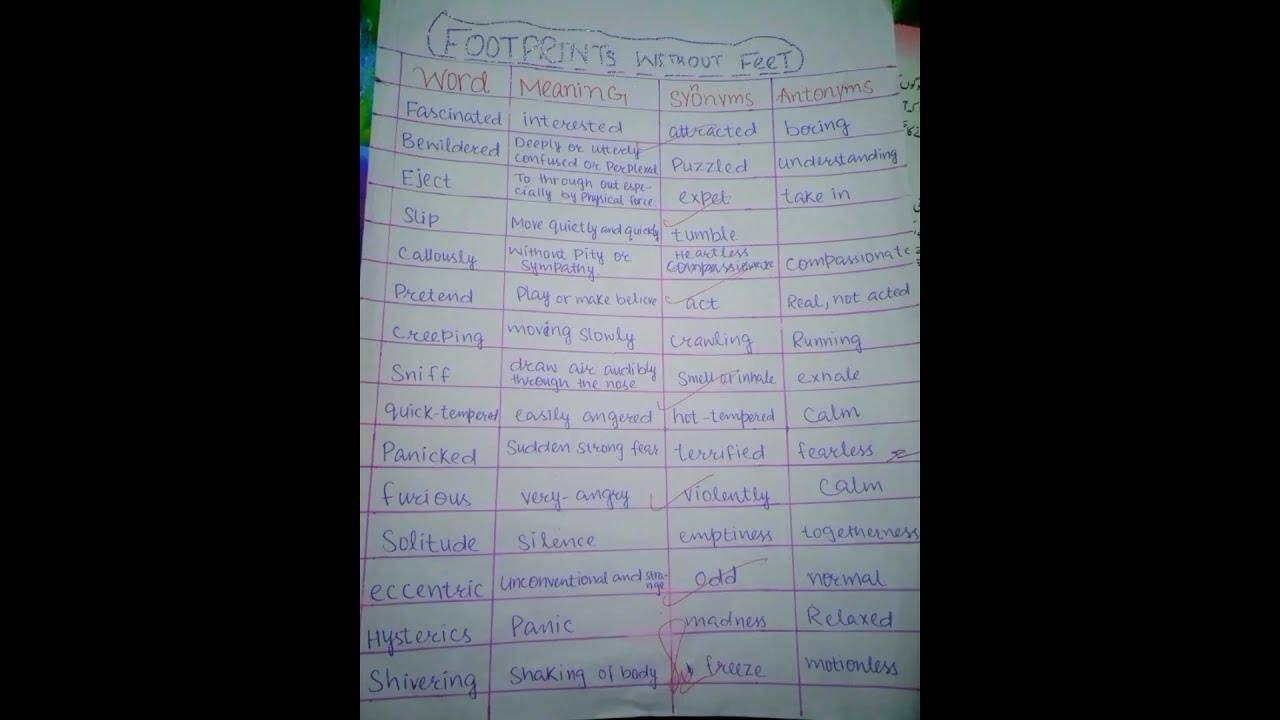 FOOTPRINTS WITHOUT FEET
Word Meaning Synonyms Antonyms
Fascinated interested attracted boring
Bewildered Deeply or utterly confused or Perplexed Puzzled understanding
Eject To through out espe-cially by Physical force expel take in
Slip Move quietly and quickly tumble
Callously Without Pity or Sympathy. Heartless Compassionate Compassionate
Pretend Play or make believe act Real, not acted
Creeping moving slowly crawling Running
Sniff draw air audibly through the nose Smell or inhale exhale
quick-tempered easily angered hot-tempered Calm
Panicked Sudden strong fear terrified fearless
furious very-angry violently Calm
Solitude Silence emptiness togetherness
eccentric Unconventional and stra-nge odd normal
Hysterics Panic madness Relaxed
Shivering Shaking of body freeze motionless